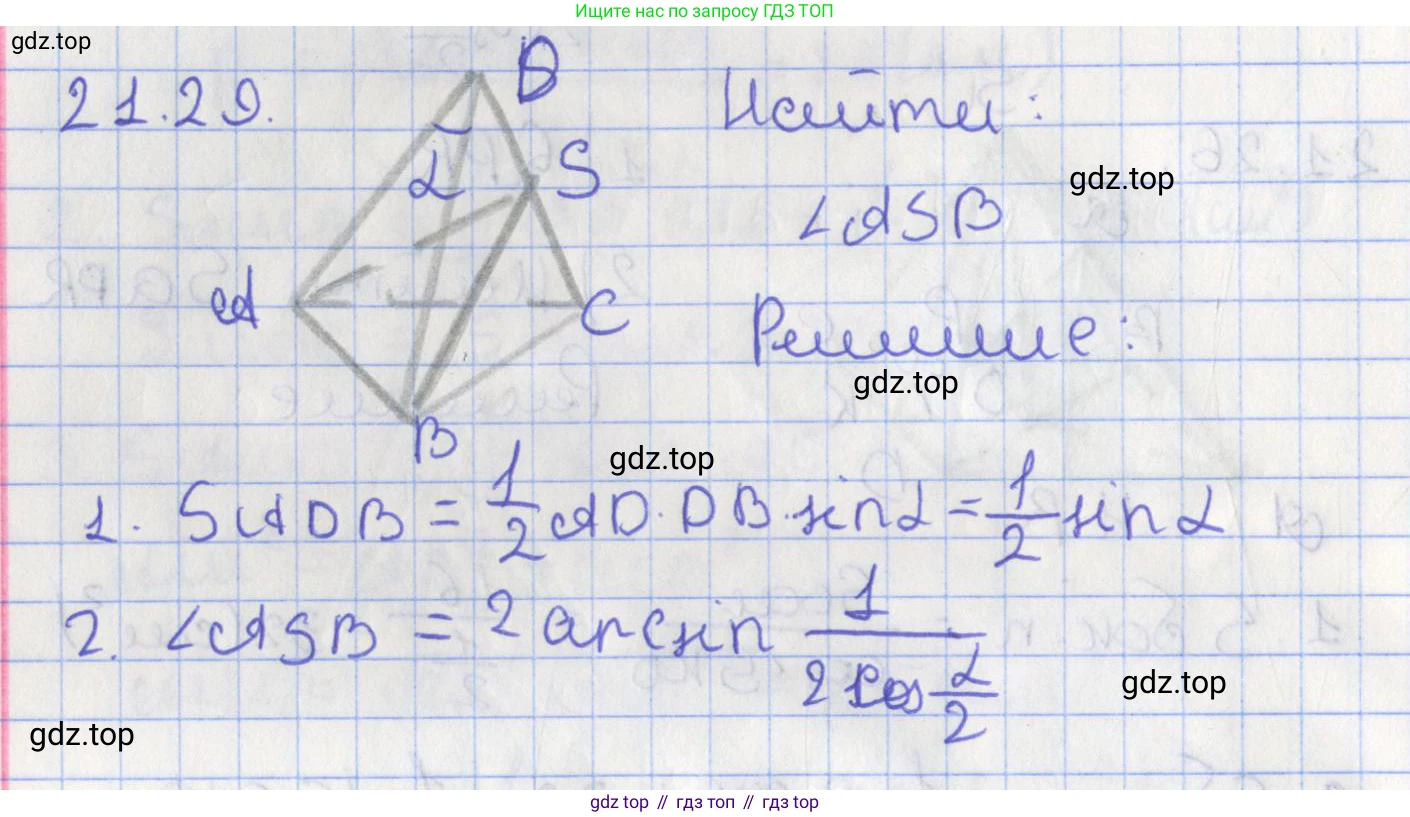 Ищите нас по запросу ГДЗ ТОП
gdz.top
21.29.
D
Найти:
α
S
gdz.top
∠ASB
A
C
Решение:
gdz.top
B
gdz.top
1. SADB = 1/2 AD · DB · sin α = 1/2 sin α
2. ∠ASB = 2 arcsin 1/(2 cos α/2)
gdz.top
gdz.top
gdz top // гдз топ // гдз top